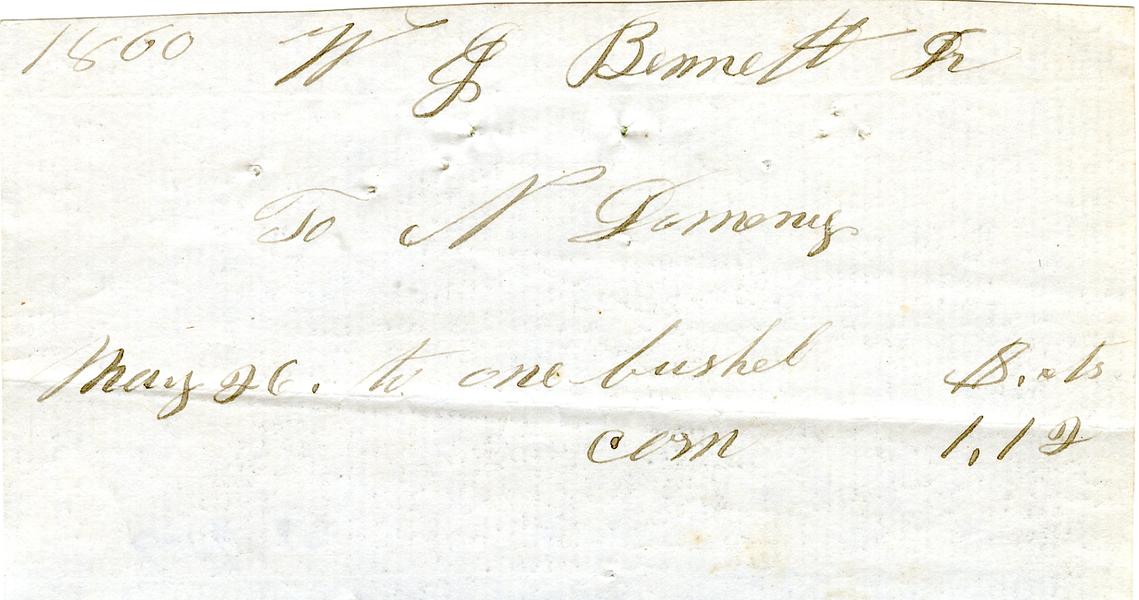 1860 W J Bennett Jr
To N Dominy
May 26. to one bushel $.cts
corn 1,12